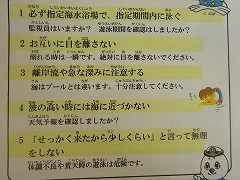 1 必ず指定海水浴場で、指定期間内に泳ぐ
監視員はいますか？ 遊泳期間を確認はしましたか？
2 お互いに目を離さない
溺れる時は一瞬です。絶対に目を離さないでください。
3 離岸流や急な深みに注意する
海はプールとは違います。十分注意してください。
4 波の高い時には海に近づかない
天気予報を確認しましたか？
5 「せっかく来たから少しくらい」と言って無理
をしない
体調不良や荒天時の遊泳は危険です。